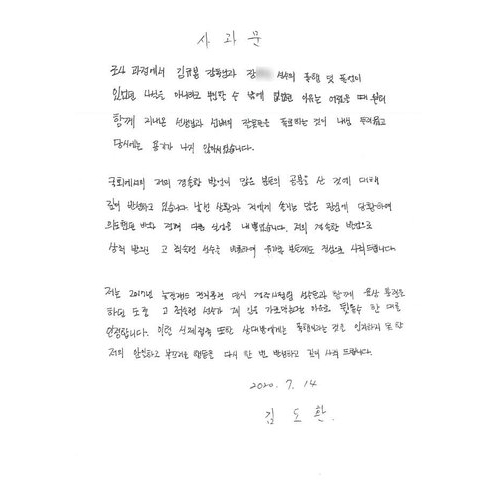 사 과 문
조사 과정에서 김규봉 감독님과 장 선수의 폭행 및 폭언이
있었던 사실을 아니라고 부인할 수 밖에 없었던 이유는 어렸을 때 부터
함께 지내온 선생님과 선배의 잘못들을 폭로하는 것이 내심 두려웠고
당시에는 용기가 나지 않았습니다.
국회에서의 저의 경솔한 발언이 많은 분들의 공분을 산 것에 대해
깊이 반성하고 있습니다. 낯선 상황과 저에게 쏠리는 많은 관심에 당황하여
의도했던 바와 전혀 다른 실언을 내뱉었습니다. 저의 경솔한 발언으로
상처 받으신 고 최숙현 선수를 비롯하여 유가족 분들께도 진심으로 사죄드립니다.
저는 2017년 뉴질랜드 전지훈련 당시 경주시청팀 선수들과 함께 육상 훈련을
하던 도중 고 최숙현 선수가 제 길을 가로막는다는 이유로 뒷통수 한 대를
인정합니다. 이런 신체접촉 또한 상대방에게는 폭행이라는 것을 인지하지 못한
저의 안일하고 부끄러운 행동을 다시 한 번 반성하고 깊이 사죄 드립니다.
2020. 7. 14
김 도 환.